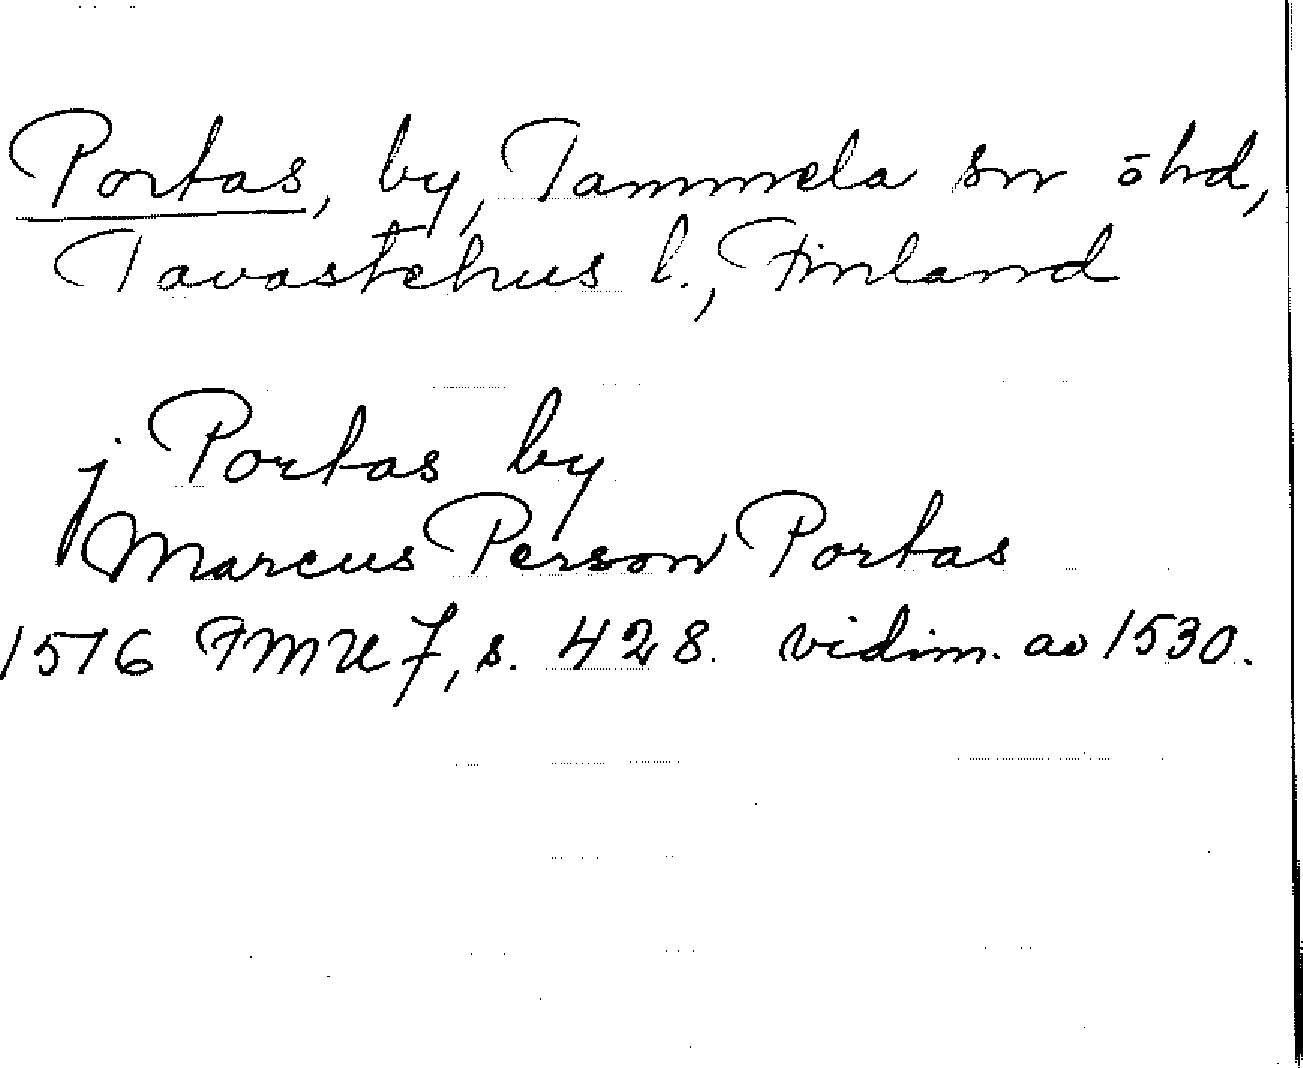 Portas, by, Tammela sn o hd,
Tavastehus l., Finland
j Portas by
Marcus Person Portas
1516 FMU 7, s. 428. vidim. av 1530.